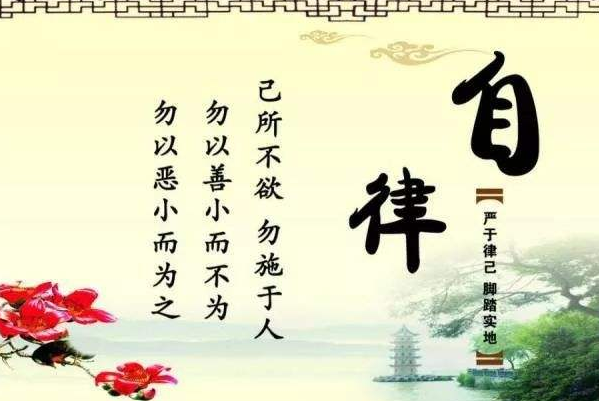 自律
严于律己 脚踏实地
己所不欲 勿施于人
勿以善小而不为
勿以恶小而为之